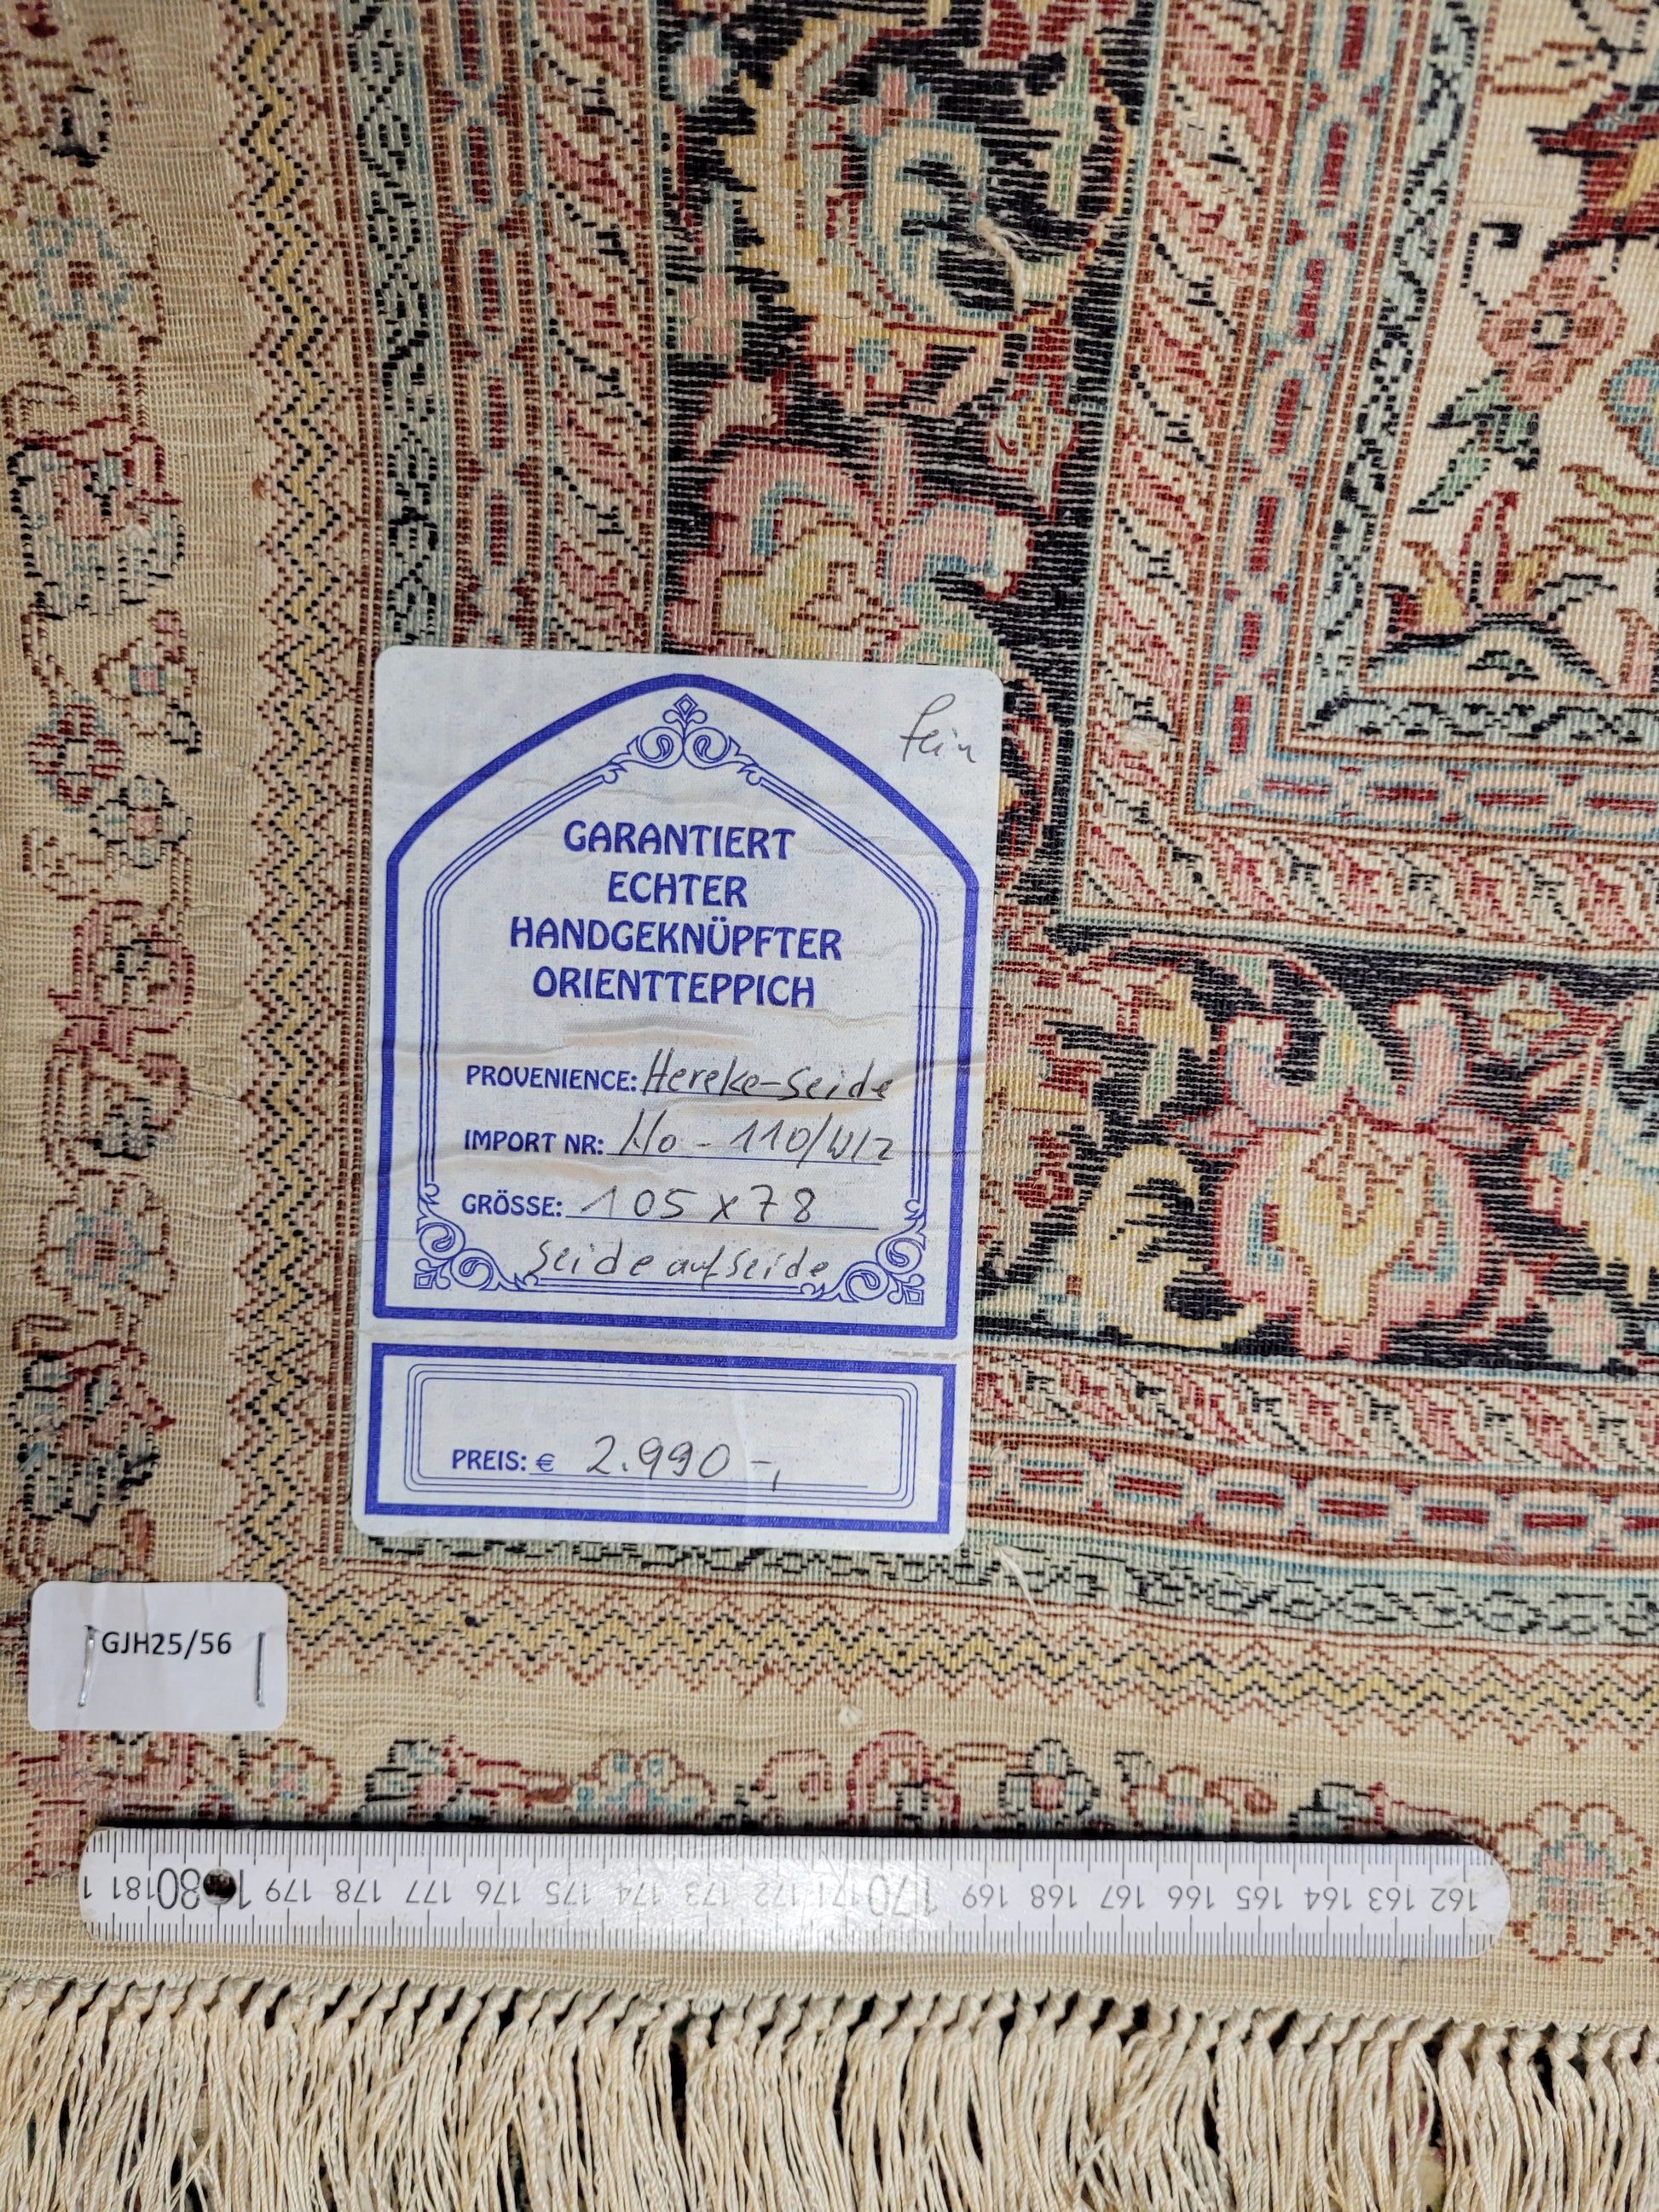 fein
GARANTIERT
ECHTER
HANDGEKNÜPFTER
ORIENTTEPPICH
PROVENIENCE: Hereke-Seide
IMPORT NR: Ho - 110/W12
GRÖSSE: 105 x 78
Seide auf Seide
PREIS: € 2.990 -,
GJH25/56
1 181 180 179 178 177 176 175 174 173 172 171 170 169 168 167 166 165 164 163 162